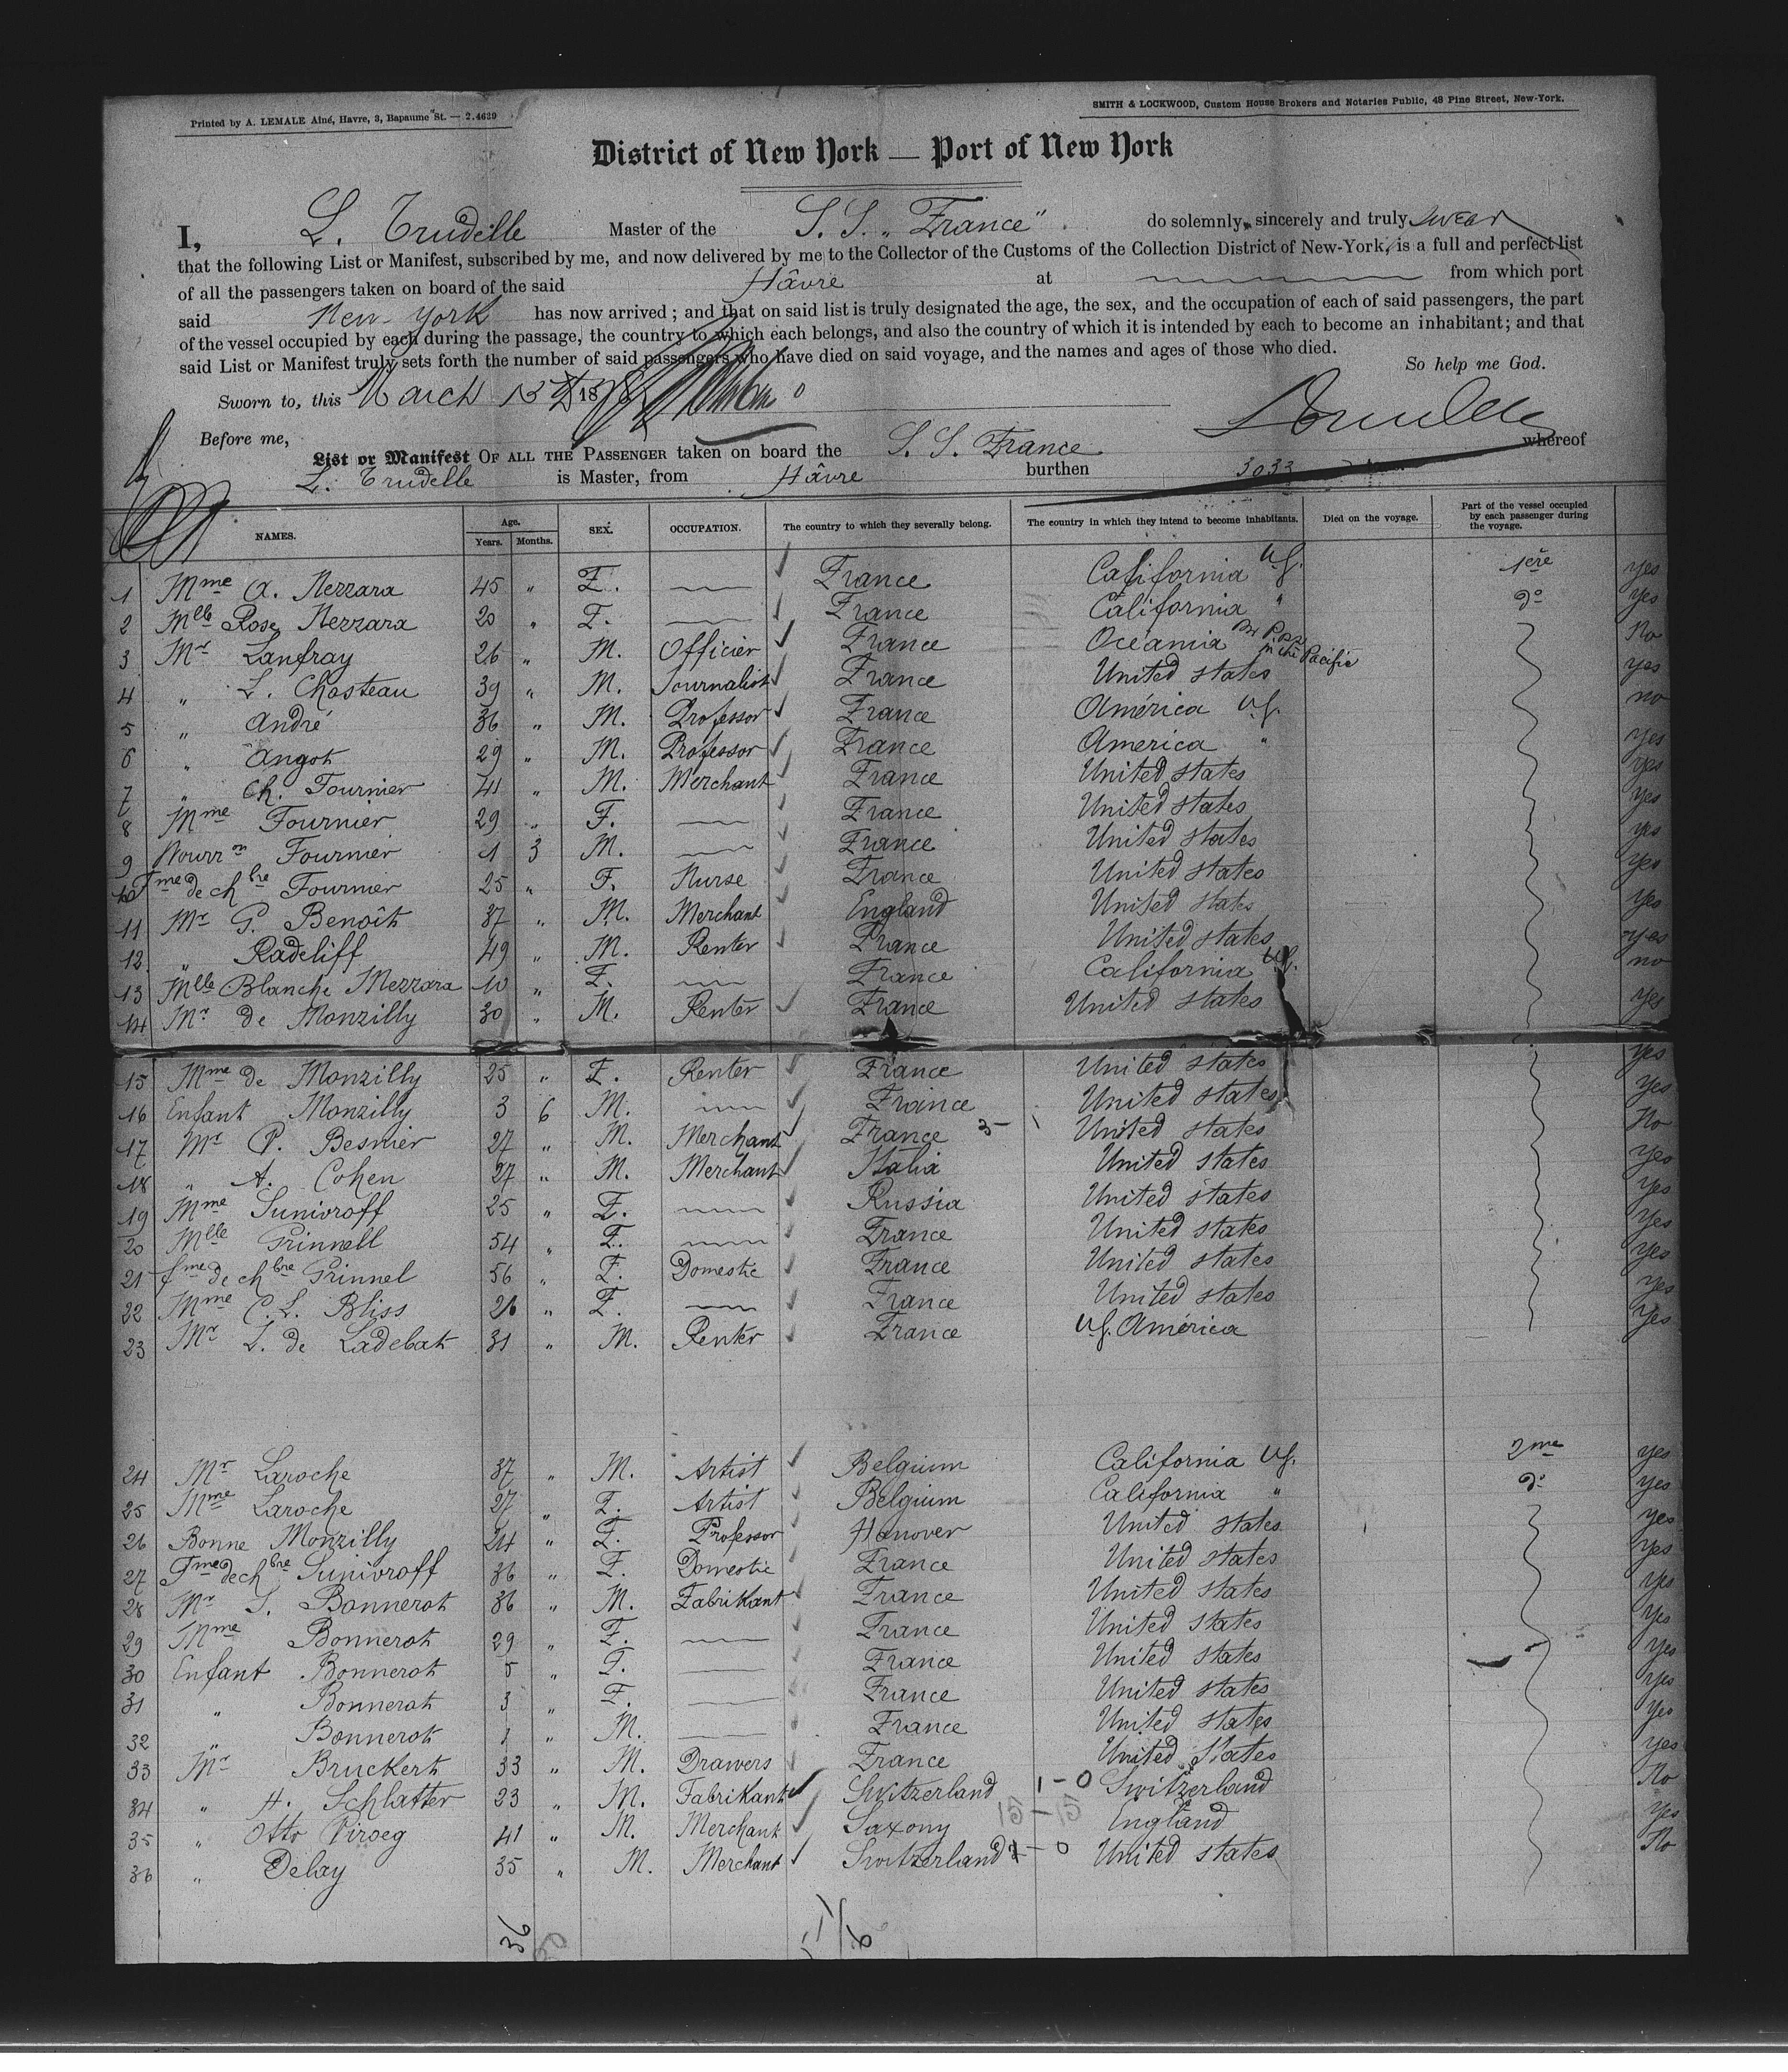 Printed by A. LEMALE Aîné, Havre, 3, Bapaume St. — 2.4639
SMITH & LOCKWOOD, Custom House Brokers and Notaries Public, 48 Pine Street, New-York.
District of New York — Port of New York
I, L. Trudelle Master of the S. S. „France" do solemnly, sincerely and truly swear
that the following List or Manifest, subscribed by me, and now delivered by me to the Collector of the Customs of the Collection District of New-York, is a full and perfect list
of all the passengers taken on board of the said Hâvre at from which port
said New-York has now arrived ; and that on said list is truly designated the age, the sex, and the occupation of each of said passengers, the part
of the vessel occupied by each during the passage, the country to which each belongs, and also the country of which it is intended by each to become an inhabitant; and that
said List or Manifest truly sets forth the number of said passengers who have died on said voyage, and the names and ages of those who died.
So help me God.
Sworn to, this March 13 18
Before me,
List or Manifest OF ALL THE PASSENGER taken on board the S. S. France whereof
L. Trudelle is Master, from Hâvre burthen 3033
NAMES. Age. Years. Months. SEX. OCCUPATION. The country to which they severally belong. The country in which they intend to become inhabitants. Died on the voyage. Part of the vessel occupied by each passenger during the voyage.
1 Mme A. Mezzara 45 „ F. — France California US. 1ère yes
2 Mlle Rose Mezzara 20 „ F. — France California " do yes
3 Mr Lanfray 26 „ M. Officier France Oceania in the Pacific No
4 „ L. Chosteau 39 „ M. Journalist France United states yes
5 „ André 36 „ M. Professor France América US. no
6 „ Angot 29 „ M. Professor France America " yes
7 „ Ch. Fournier 41 „ M. Merchant France United states yes
8 Mme Fournier 29 „ F. — France United states yes
9 Nourron Fournier 1 3 M. — France United states yes
10 Fme de chbre Fournier 25 „ F. Nurse France United states yes
11 Mr G. Benoît 37 „ M. Merchant England United states yes
12 „ Radcliff 49 „ M. Renter France United states yes
13 Mlle Blanche Mezzara 10 „ F. — France California US. no
14 Mr de Monzilly 30 „ M. Renter France United states yes
15 Mme de Monzilly 25 „ F. Renter France United states yes
16 Enfant Monzilly 3 6 M. — France United states yes
17 Mr P. Besnier 27 „ M. Merchant France 3- United states No
18 „ A. Cohen 27 „ M. Merchant Italia United states yes
19 Mme Sunivroff 25 „ F. — Russia United states yes
20 Mlle Grinnell 54 „ F. — France United states yes
21 fme de chbre Grinnel 56 „ F. Domestic France United states yes
22 Mme C. L. Bliss 26 „ F. — France United states yes
23 Mr L. de Ladebat 31 „ M. Renter France US. América yes
24 Mr Laroche 37 „ M. Artist Belgium California US. 2me yes
25 Mme Laroche 27 „ F. Artist Belgium California " do yes
26 Bonne Monzilly 24 „ F. Professor Hanover United states yes
27 Fme de chbre Sunivroff 36 „ F. Domestic France United states yes
28 Mr S. Bonnerot 36 „ M. Fabrikant France United states yes
29 Mme Bonnerot 29 „ F. — France United states yes
30 Enfant Bonnerot 5 „ F. — France United states yes
31 „ Bonnerot 3 „ F. — France United states yes
32 „ Bonnerot 1 „ M. — France United states yes
33 Mr Bruckert 33 „ M. Drawers France United States yes
34 „ H. Schlatter 23 „ M. Fabrikant Switzerland 1-0 Switzerland No
35 „ Otto Viroeg 41 „ M. Merchant Saxony 15-15 England yes
36 „ Delay 35 „ M. Merchant Switzerland 1-0 United states No
36